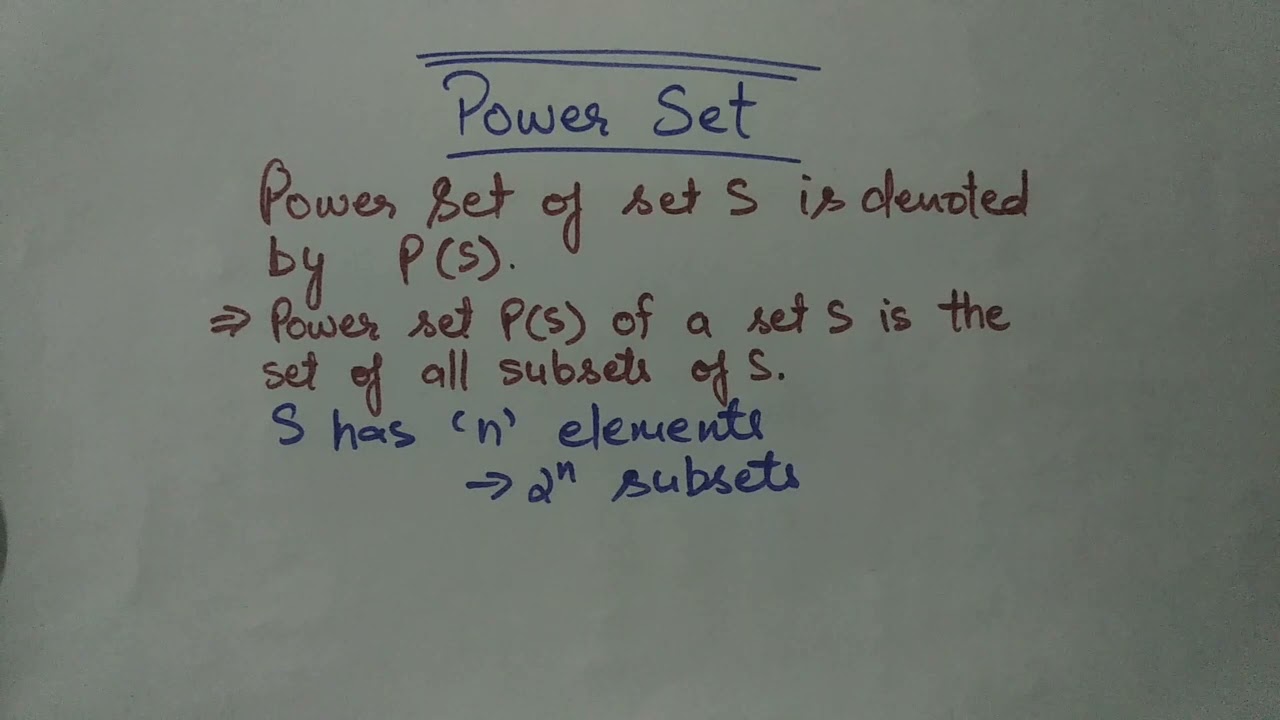 Power Set
Power Set of set S is denoted
by P(S).
⇒ Power set P(S) of a set S is the
set of all subsets of S.
S has 'n' elements
→ 2ⁿ subsets